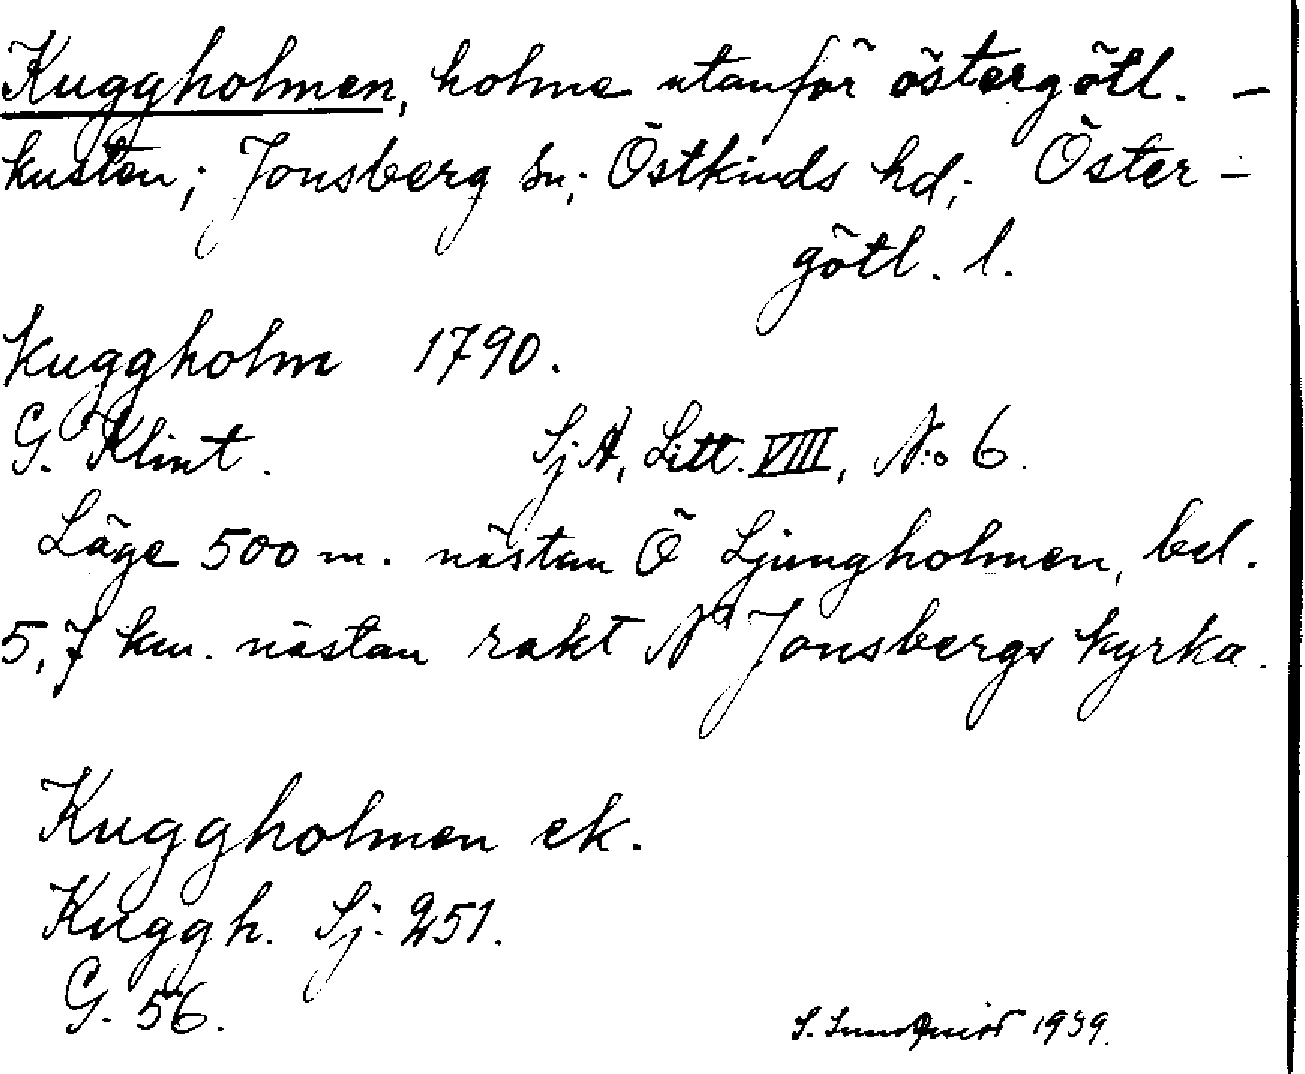 Kuggholmen, holme utanför östergötl. -
kusten; Jonsberg sn; Östkinds hd; Öster -
götl. l.
Kuggholm 1790.
G. Klint. SjA, Litt. VIII, N:o 6.
Läge 500 m. nästan Ö Ljungholmen, bel.
5,7 km. nästan rakt N Jonsbergs kyrka.
Kuggholmen ek.
Kuggh. Sj. 251.
G. 56.
S. 1939.